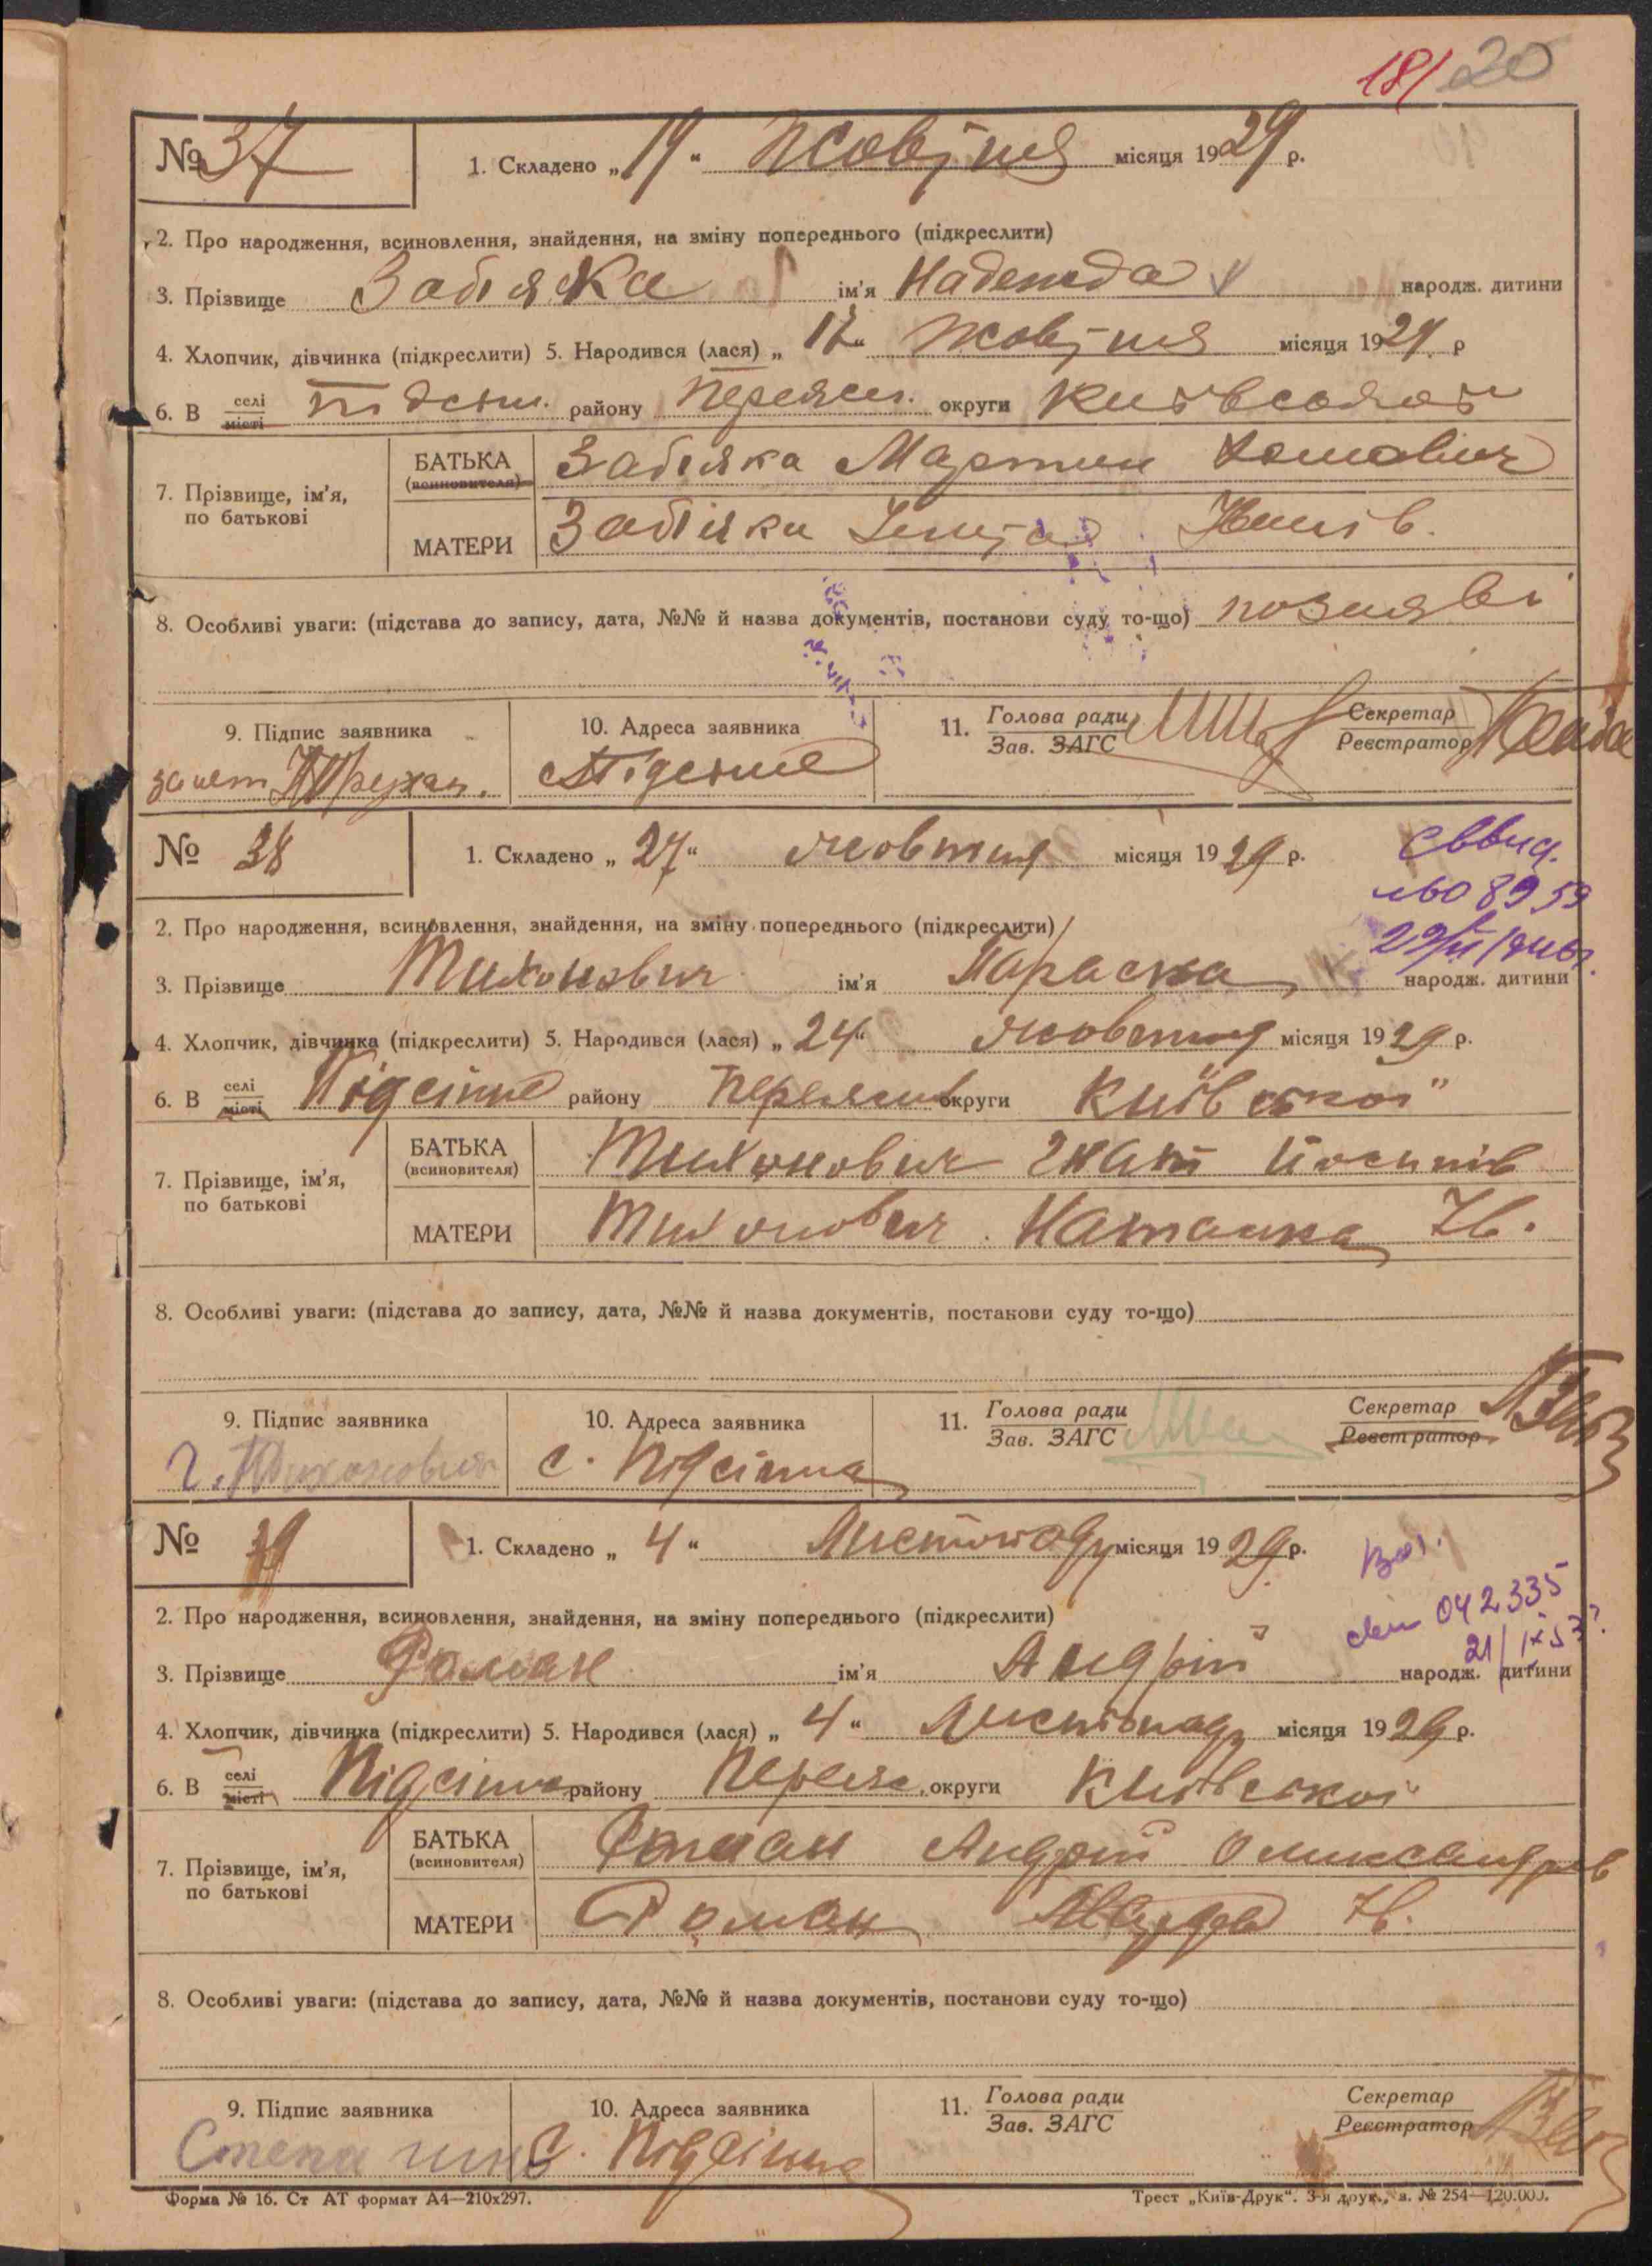 181 20
№ 37 1. Складено „19“ Жовтня місяця 1929 р.
2. Про народження, всиновлення, знайдення, на зміну попереднього (підкреслити)
3. Прізвище Забіяка ім'я Надежда народж. дитини
4. Хлопчик, дівчинка (підкреслити) 5. Народився (лася) „17“ Жовтня місяця 1929 р
6. В селі місті Підсін. району Переясл. округи Київської
7. Прізвище, ім'я, по батькові
БАТЬКА (всиновителя) Забіяка Мартин
МАТЕРИ Забіяка
8. Особливі уваги: (підстава до запису, дата, №№ й назва документів, постанови суду то-що) по заяві
9. Підпис заявника 10. Адреса заявника 11. Голова ради Зав. ЗАГС Секретар Реєстратор
Підсінне
№ 38 1. Складено „27“ жовтня місяця 1929 р.
2. Про народження, всиновлення, знайдення, на зміну попереднього (підкреслити)
3. Прізвище Тихонович ім'я Параска народж. дитини
4. Хлопчик, дівчинка (підкреслити) 5. Народився (лася) „24“ жовтня місяця 1929 р.
6. В селі місті Підсінне району Переяслів округи Київської
7. Прізвище, ім'я, по батькові
БАТЬКА (всиновителя) Тихонович Гнат Йосипів
МАТЕРИ Тихонович Наталка Ів.
8. Особливі уваги: (підстава до запису, дата, №№ й назва документів, постанови суду то-що)
9. Підпис заявника 10. Адреса заявника 11. Голова ради Зав. ЗАГС Секретар Реєстратор
Г. Тихонович с. Підсінна
№ 39 1. Складено „4“ Листопаду місяця 1929 р.
042335
2. Про народження, всиновлення, знайдення, на зміну попереднього (підкреслити)
3. Прізвище Роман ім'я Андрій народж. дитини
4. Хлопчик, дівчинка (підкреслити) 5. Народився (лася) „4“ Листопаду місяця 1929 р.
6. В селі місті Підсінна району Переяс. округи Київської
7. Прізвище, ім'я, по батькові
БАТЬКА (всиновителя) Роман Андрій Олександрів
МАТЕРИ Роман Ів.
8. Особливі уваги: (підстава до запису, дата, №№ й назва документів, постанови суду то-що)
9. Підпис заявника 10. Адреса заявника 11. Голова ради Зав. ЗАГС Секретар Реєстратор
С. Підсінна
Форма № 16. Ст АТ формат А4—210х297. Трест „Київ-Друк“. 3-я друк., з. № 254—120.000.